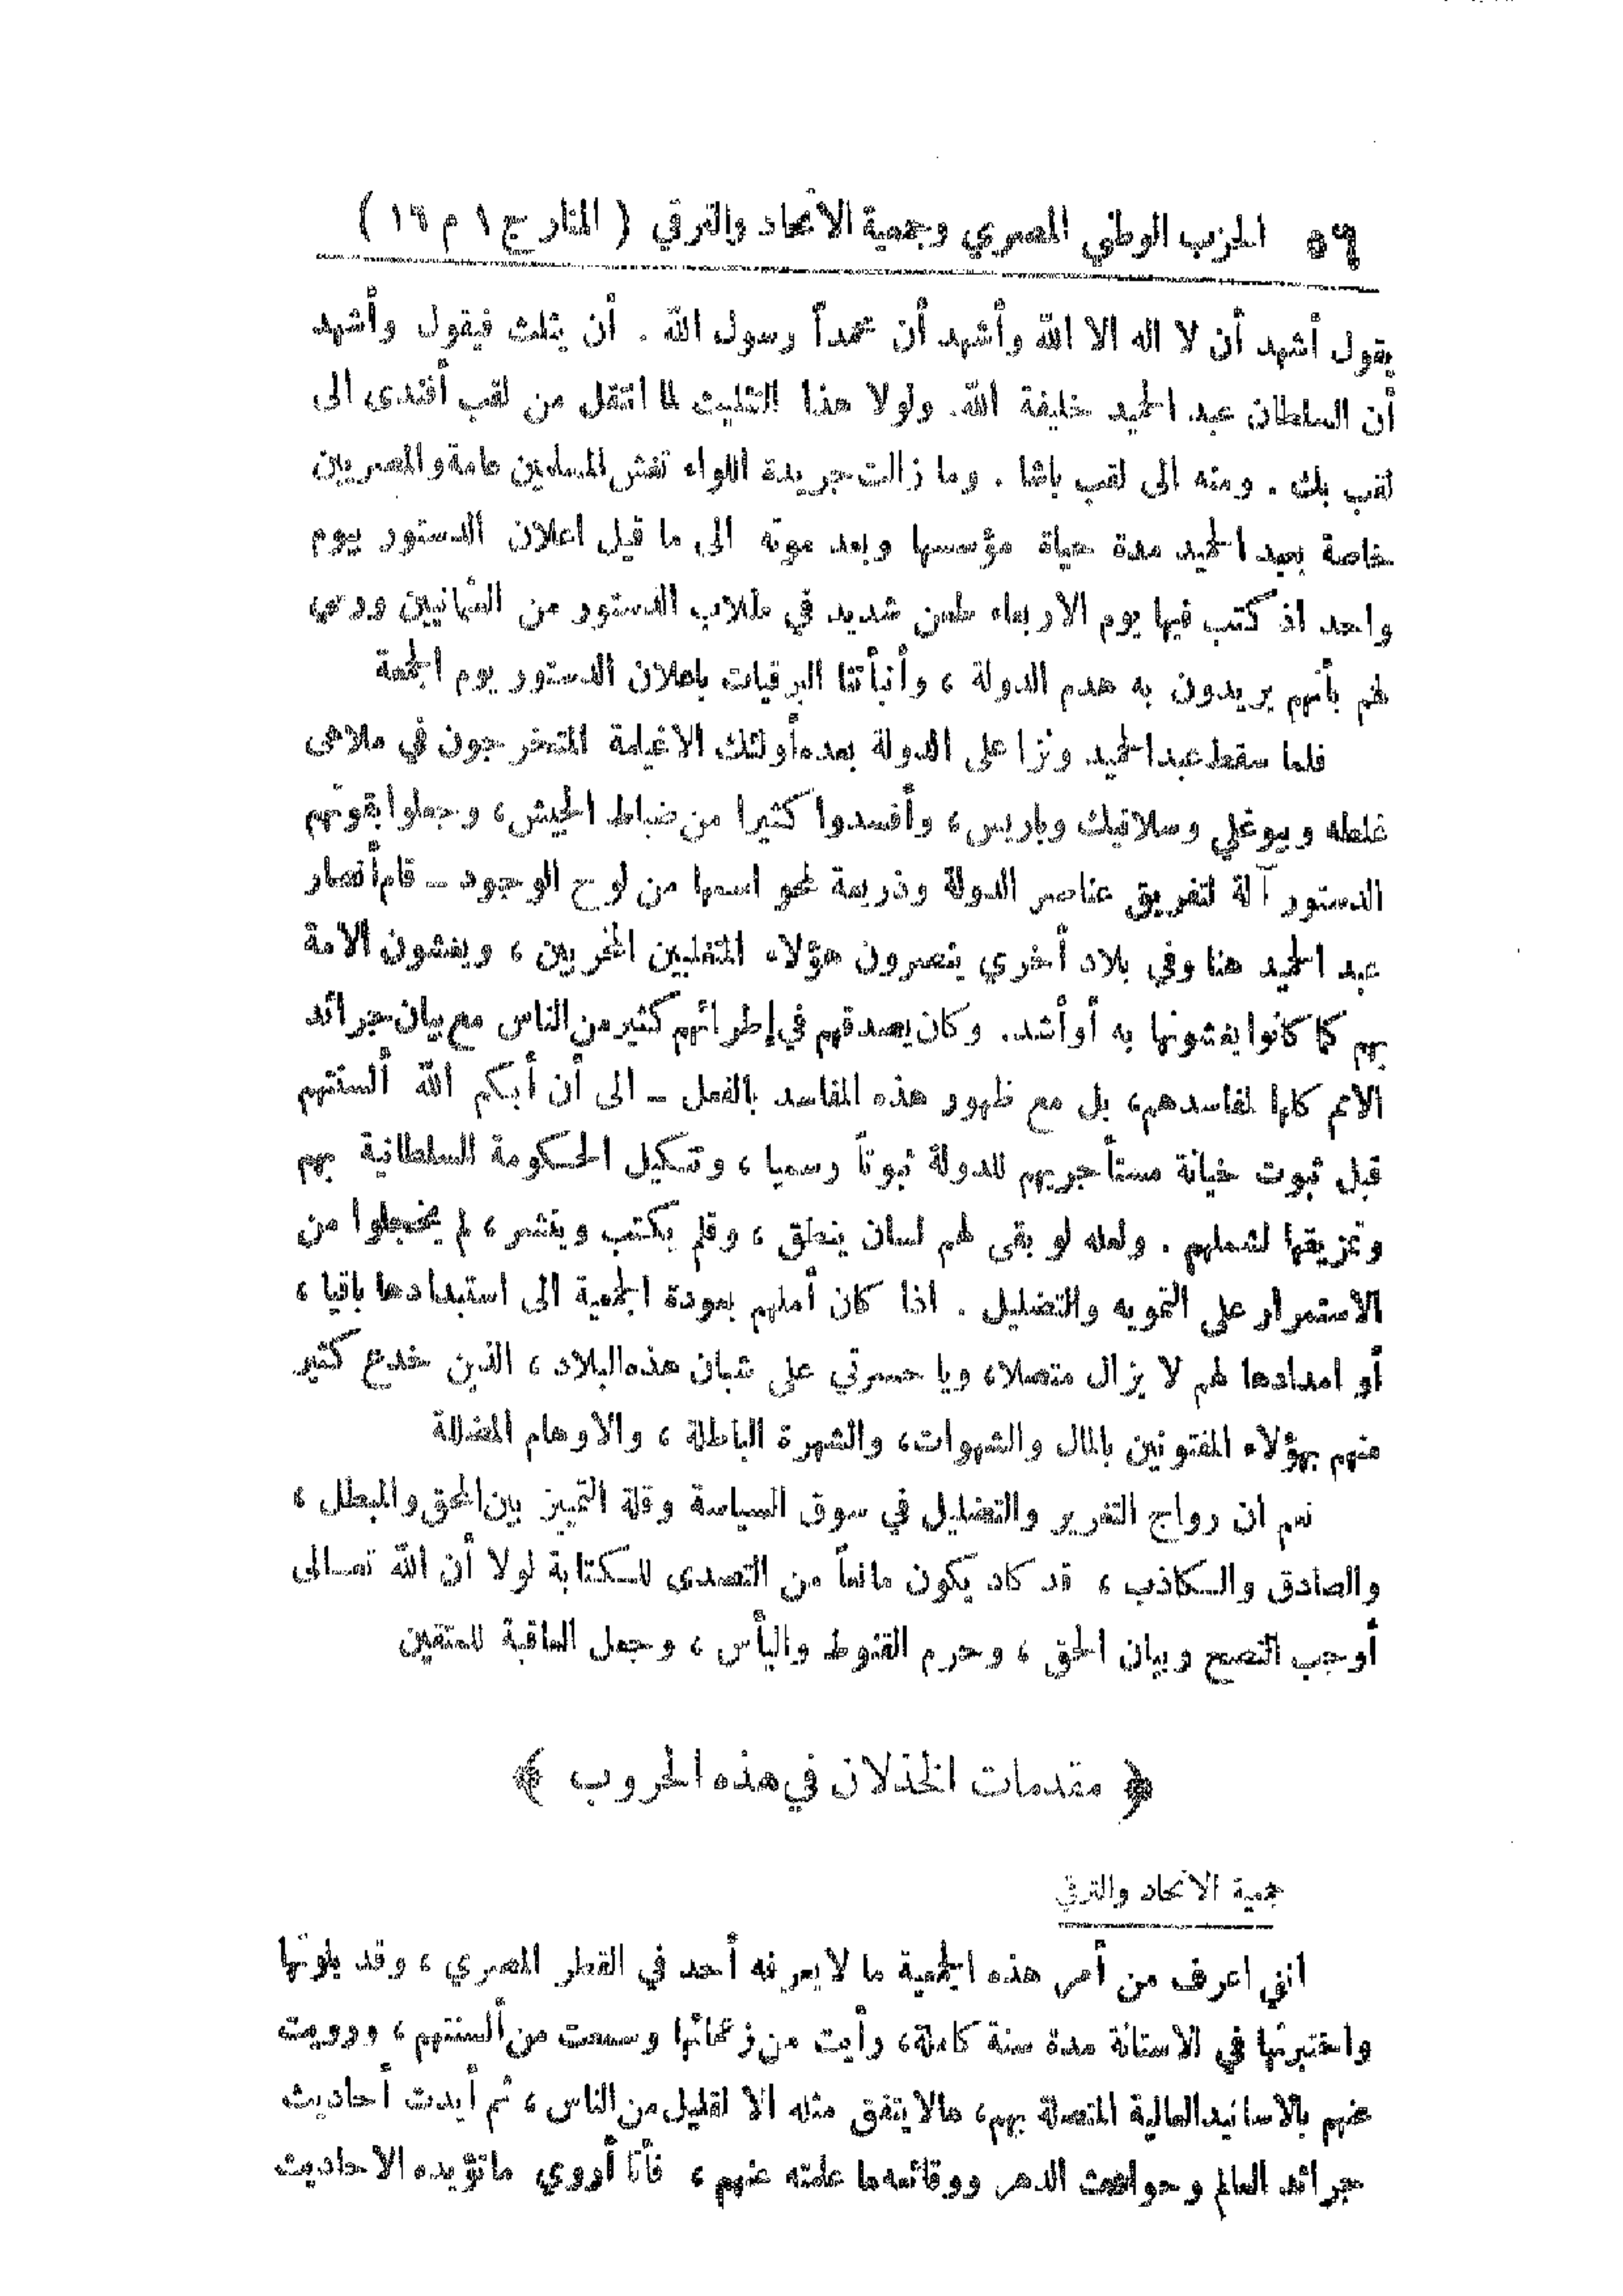 ٥٦ الحزب الوطني المصري وجمعية الاتحاد والترقي ( المنار ج ١ م ١٦ )
يقول أشهد أن لا اله الا الله وأشهد أن محمداً رسول الله . أن يثلث فيقول وأشهد
أن السلطان عبد الحميد خليفة الله. ولولا هذا التثليث لما انتقل من لقب أفندى الى
لقب بك . ومنه الى لقب باشا . وما زالت جريدة اللواء تغش المسلمين عامة والمصريين
خاصة بعبد الحميد مدة حياة مؤسسها وبعد موته الى ما قبل اعلان الدستور بيوم
واحد اذ كتب فيها يوم الاربعاء طعن شديد في طلاب الدستور من العثمانيين ورمي
لهم بأنهم يريدون به هدم الدولة ، وأنبأتنا البرقيات باعلان الدستور يوم الجمعة
فلما سقط عبد الحميد ونزا على الدولة بعده أولئك الاغيلمة المتخرجون في ملاهى
غلطه وبيوغلي وسلانيك وباريس ، وأفسدوا كثيرا من ضباط الجيش ، وجعلوا بقوتهم
الدستور آلة لتفريق عناصر الدولة وذريعة لمحو اسمها من لوح الوجود ــ قام أنصار
عبد الحميد هنا وفي بلاد أخري ينصرون هؤلاء المتغلبين المخربين ، ويغشون الامة
بهم كما كانوا يغشونها به أو أشد. وكان يصدقهم في إطرائهم كثير من الناس مع بيان جرائد
الامم كلها لمفاسدهم، بل مع ظهور هذه المفاسد بالفعل ــ الى أن أبكم الله ألسنتهم
قبل ثبوت خيانة مستأجريهم للدولة ثبوتاً رسميا ، وتنكيل الحكومة السلطانية بهم
وتمزيقها لشملهم . ولعله لو بقى لهم لسان ينطق ، وقلم يكتب وينشر ، لم يخجلوا من
الاستمرار على التمويه والتضليل . اذا كان أملهم بعودة الجمعية الى استبدادها باقيا ،
أو امدادها لهم لا يزال متصلا، ويا حسرتي على شبان هذه البلاد ، الذين خدع كثير
منهم بهؤلاء المفتونين بالمال والشهوات، والشهرة الباطلة ، والاوهام المضللة
نعم ان رواج التغرير والتضليل في سوق السياسة وقلة التمييز بين المحق والمبطل ،
والصادق والكاذب ، قد كاد يكون مانعاً من التصدى للكتابة لولا أن الله تعالى
أوجب النصح وبيان الحق ، وحرم القنوط واليأس ، وجعل العاقبة للمتقين
﴿ مقدمات الخذلان في هذه الحروب ﴾
جمعية الاتحاد والترقي
انني اعرف من أمر هذه الجمعية ما لا يعرفه أحد في القطر المصري ، وقد بلوتها
واختبرتها في الاستانة مدة سنة كاملة، رأيت من زعمائها وسمعت من ألسنتهم ، ورويت
عنهم بالاسانيد العالية المتصلة بهم، مالا يتفق مثله الا لقليل من الناس ، ثم أيدت أحاديث
جرائد العالم وحوادث الدهر ووقائعه ما علمته عنهم ، فأنا أروي ما تؤيده الاحاديث